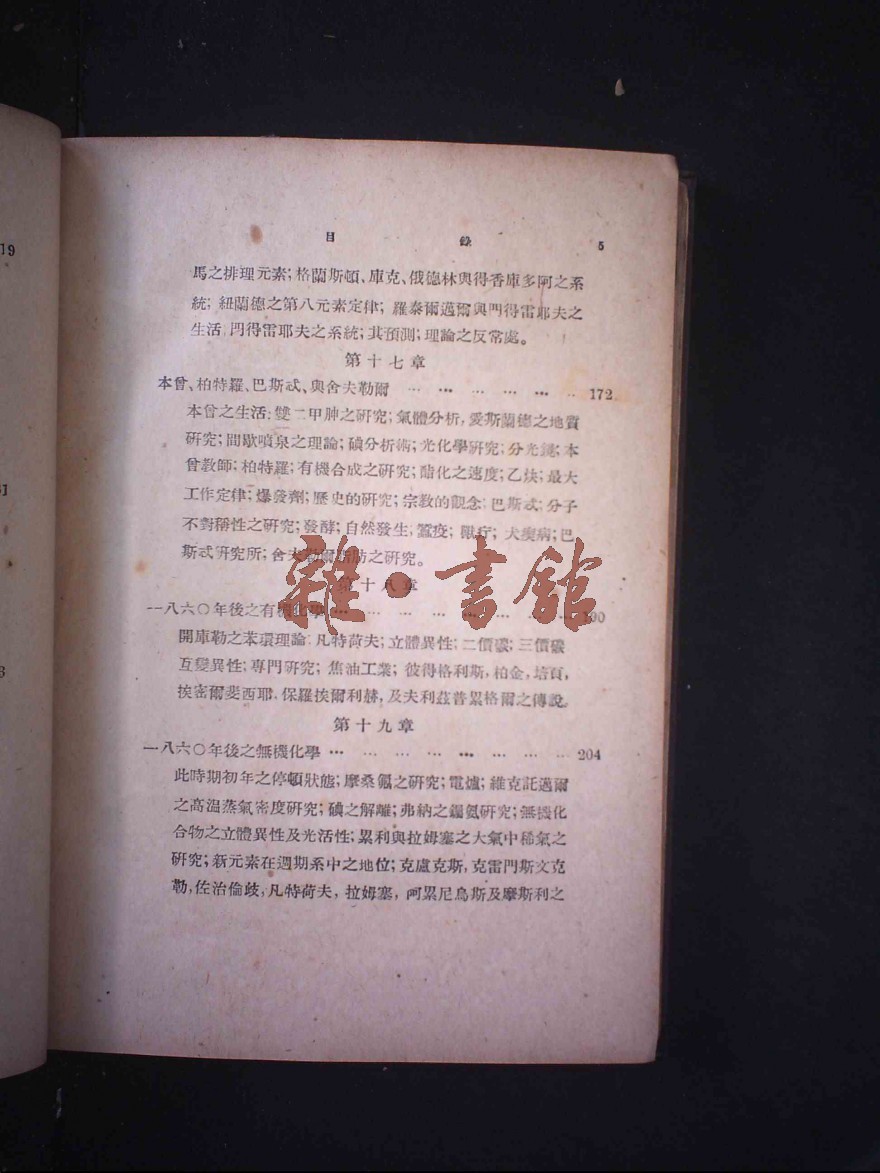 19
51
3
目 錄 5
馬之排理元素;格蘭斯頓、庫克、俄德林與得香庫多阿之系
統;紐蘭德之第八元素定律;羅泰爾邁爾與門得雷耶夫之
生活 門得雷耶夫之系統;其預測;理論之反常處。
第十七章
本曾、柏特羅、巴斯忒、與舍夫勒爾 … … … … … … 172
本曾之生活;雙二甲胂之研究;氣體分析,愛斯蘭德之地質
研究;間歇噴泉之理論;碘分析術;光化學研究;分光鏡;本
曾教師;柏特羅;有機合成之研究;酯化之速度;乙炔;最大
工作定律;爆發劑;歷史的研究;宗教的觀念;巴斯忒;分子
不對稱性之研究;發酵;自然發生;蠶疫;犬瘈病;巴
斯忒研究所;舍夫勒爾脂肪之研究。
第十八章
一八六〇年後之有機化學 … … … … … … …
開庫勒之苯環理論 凡特荷夫;立體異性;二價碳;三價碳
互變異性;專門研究;焦油工業;彼得格利斯,柏金,培頁,
挨密爾斐西耶,保羅挨爾利赫,及夫利茲普累格爾之傳說。
第十九章
一八六〇年後之無機化學 … … … … … … … … 204
此時期初年之停頓狀態;摩桑氟之研究;電爐;維克託邁爾
之高溫蒸氣密度研究;碘之解離;弗納之鈷氨研究;無機化
合物之立體異性及光活性;累利與拉姆塞之大氣中稀氣之
研究;新元素在週期系中之地位;克盧克斯,克雷門斯文克
勒,佐治倫歧,凡特荷夫,拉姆塞,阿累尼烏斯及摩斯利之
雜·書館